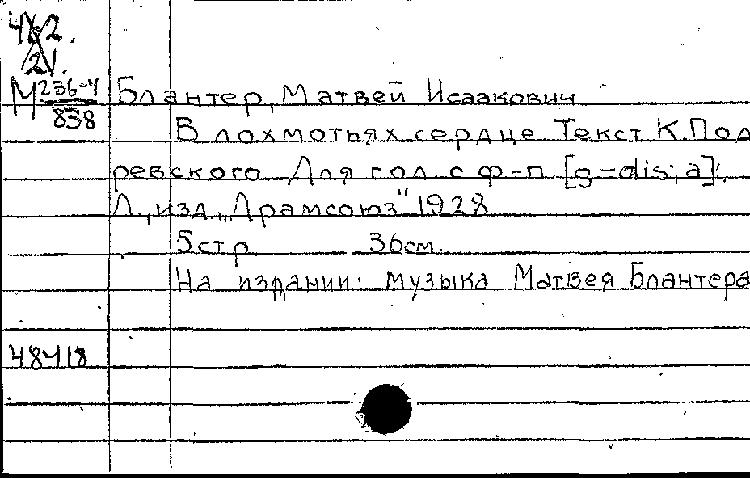 21.
М 236-4
838
Блантер, Матвей Исаакович
В лохмотьях сердце Текст К. Под
ревского Для гол. с ф-п. [g-dis; a].
Л., изд. „Драмсоюз" 1928
5 стр 36 см.
На издании: музыка Матвея Блантера
48418